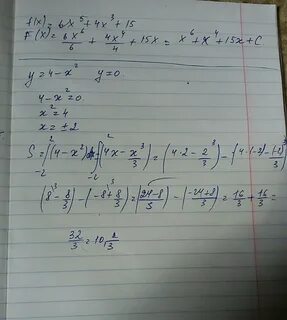 f(x) = 6x⁵ + 4x³ + 15
F(x) = 6x⁶/6 + 4x⁴/4 + 15x = x⁶ + x⁴ + 15x + C
y = 4 - x² y = 0
4 - x² = 0
x² = 4
x = ± 2
S = ∫₋₂² (4 - x²) ∫₋₂² (4x - x³/3) = (4·2 - 2³/3) - (4·(-2) - (-2)³/3)
(8 - 8/3) - (-8 + 8/3) = (24-8/3) - (-24+8/3) = 16/3 + 16/3 =
32/3 = 10 2/3